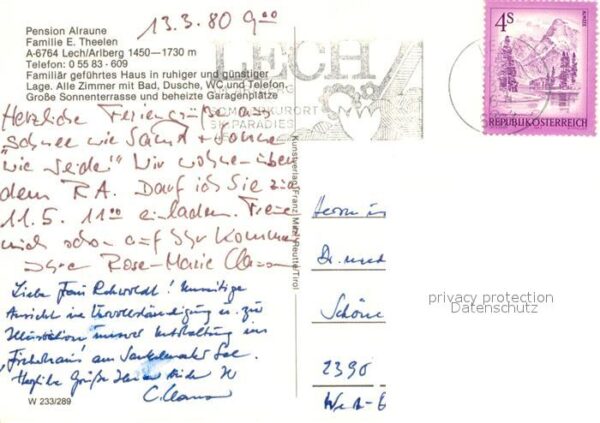 13.3.80 9⁰⁰
Pension Alraune
Familie E. Theelen
A-6764 Lech/Arlberg 1450—1730 m
Telefon: 0 55 83 · 609
Familiär geführtes Haus in ruhiger und günstiger
Lage. Alle Zimmer mit Bad, Dusche, WC und Telefon.
Große Sonnenterrasse und beheizte Garagenplätze
Herzliche Feriengrüße aus
"Schnee wie Samt + Sonne
wie Seide" Wir wohnen über
dem RA. Darf ich Sie zu
11.5. 11⁰⁰ einladen. Freue
mich schon auf Ihr Kommen
Ihre Rose-Marie
Liebe Frau
Ansicht zur
Illustration unserer Unterhaltung im
"Fischerhaus" am See.
Herzliche Grüße Ihnen
C.
W 233/289
Kunstverlag Franz Milz Reutte/Tirol
LECH
KURORT
SKIPARADIES
4S
REPUBLIK ÖSTERREICH
Herrn
Dr. med
Schöne
2390
West-
privacy protection
Datenschutz